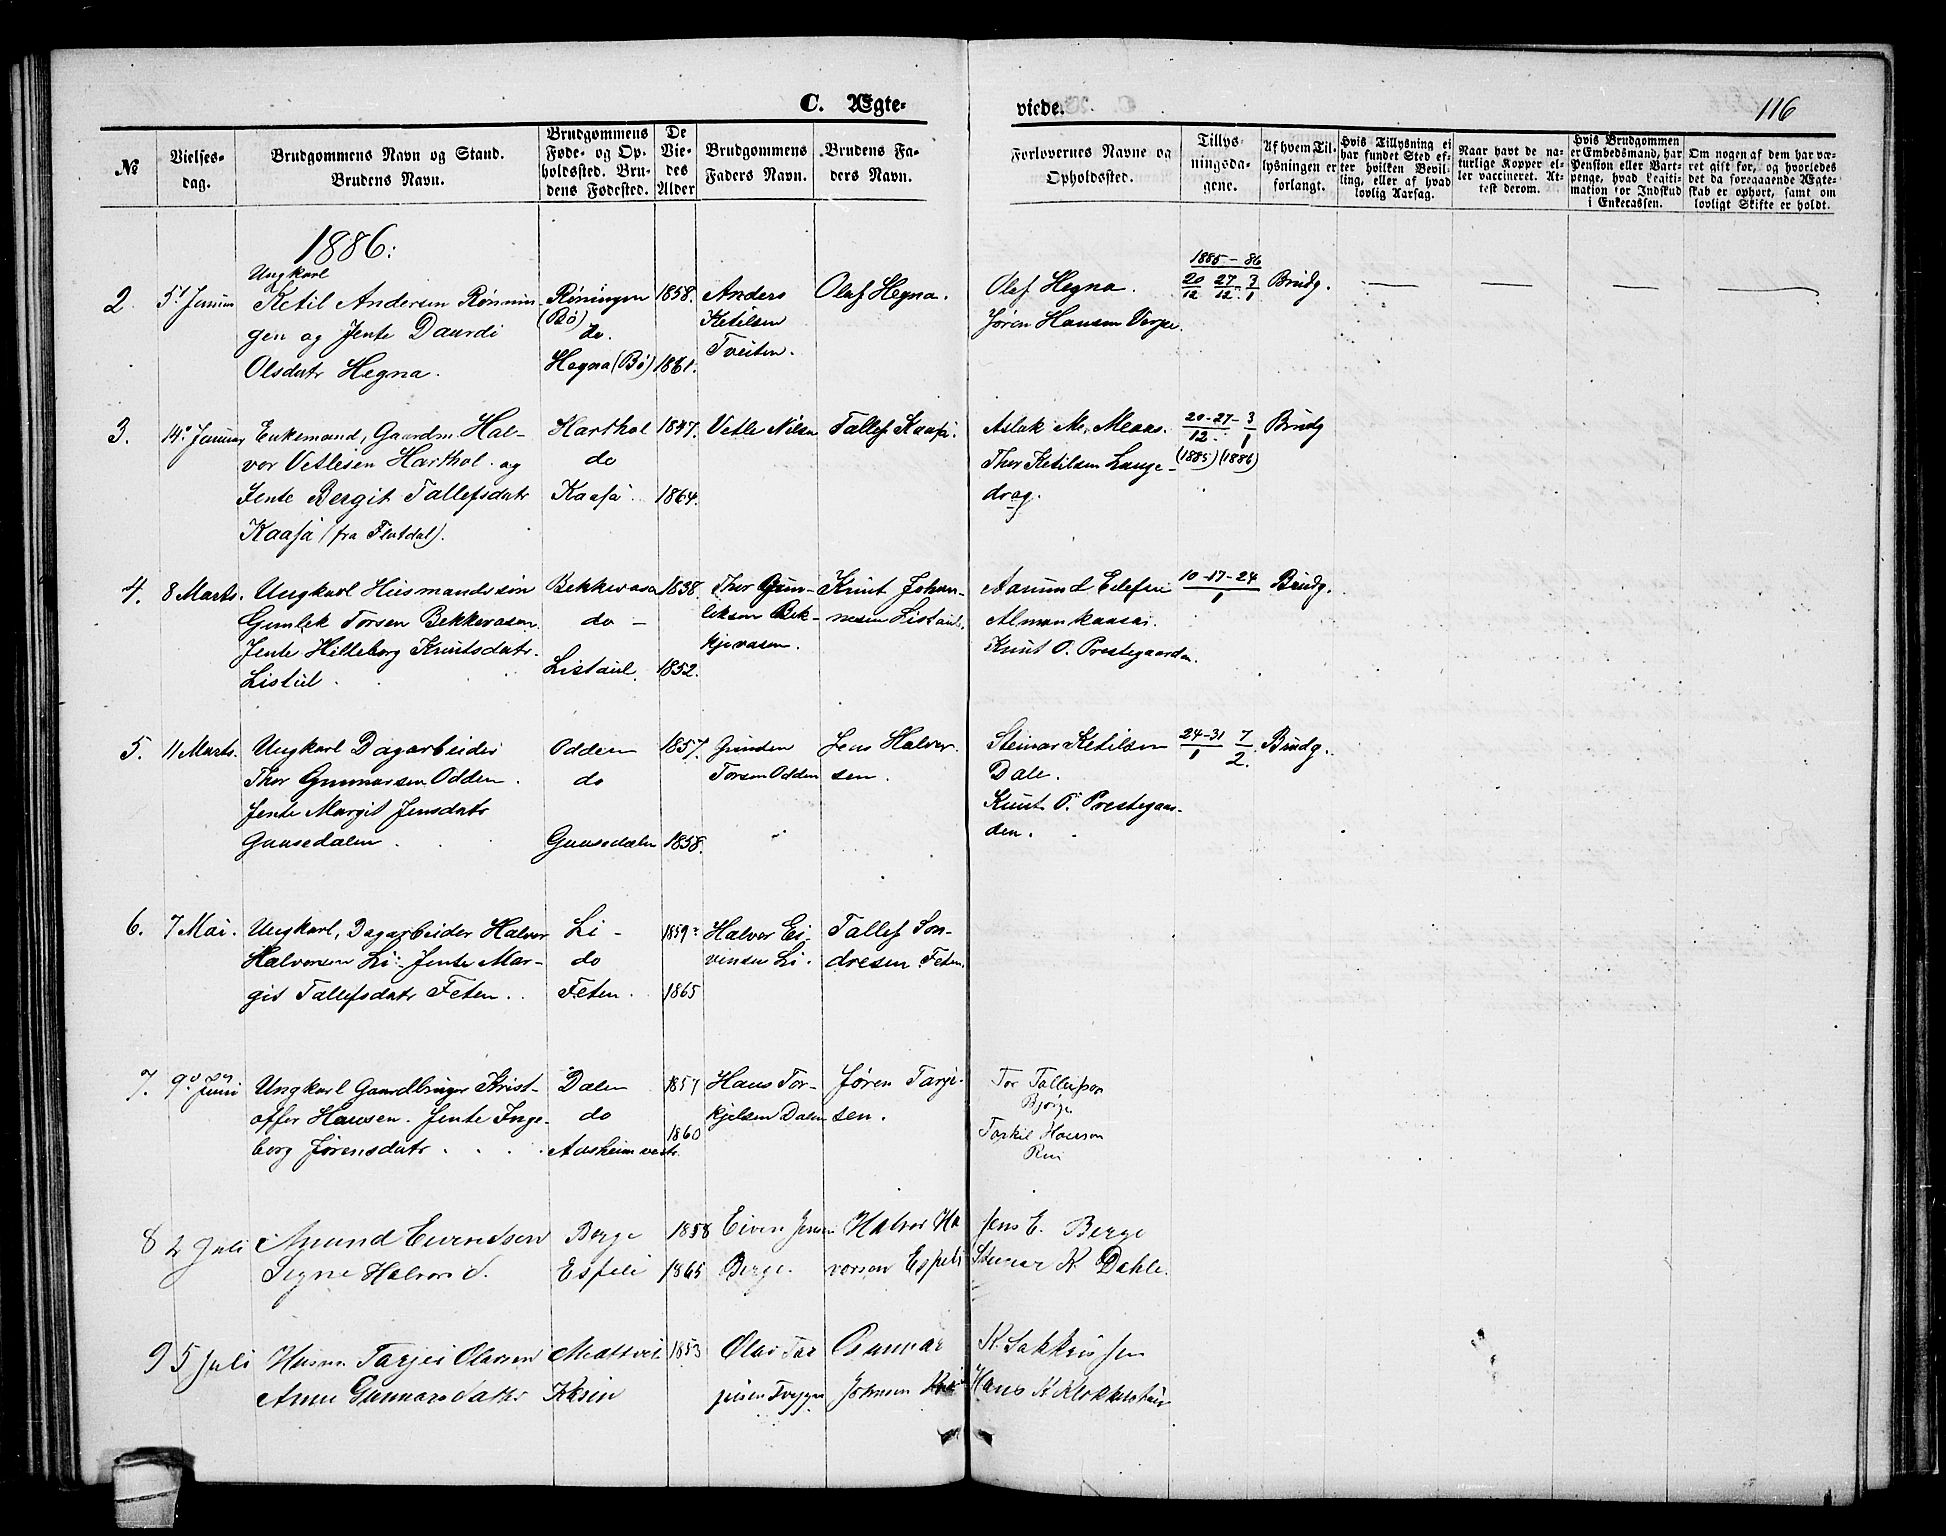 C. Ægte-
viede.
116
№
Vielses-
dag.
Brudgommens Navn og Stand.
Brudens Navn.
Brudgommens
Føde- og Op-
holdssted. Bru-
dens Fødested.
De
Vie-
des
Alder
Brudgommens
Faders Navn.
Brudens Fa-
ders Navn.
Forlovernes Navne og
Opholdssted.
Tillys-
ningsda-
gene.
Af hvem Til-
lysningen er
forlangt.
Hvis Tillysning ei
har fundet Sted ef-
ter hvilken Bevil-
ling, eller af hvad
lovlig Aarsag.
Naar havt de na-
turlige Kopper el-
ler vaccineret. At-
test derom.
Hvis Brudgommen
er Embedsmand, har
Pension eller Vart-
penge, hvad Legiti-
mation for Indskud
i Enkecassen.
Om nogen af dem har væ-
ret gift før, og hvorledes
det da foregaaende Ægte-
skab er ophørt, samt om
lovligt Skifte er holdt.
1886:
2.
5t Januar
Ungkarl
Ketil Andersen Rønnin-
gen og Jente Daardi
Olsdatr Hegna.
Røningen
(Bø)
do.
Hegna (Bø)
1858.
1861.
Anders
Ketilsen
Tveiten.
Olaf Hegna.
Olaf Hegna.
Jøren Hansen Verpe.
1885-86
20 27 3
12 12 1
Brudg.
3.
14. Januar
Enkemand, Gaardm. Hal-
vor Vetlesen Harthol og
Jente Bergit Tallefsdatr
Kaasa (fra Flatdal).
Harthol
do
Kaasa
1847.
1864.
Vetle Nilsen
Tallef Kaasa.
Aslak M. Maas.
Thor Ketilsen Lange-
drag.
20-27-3
12. 1
(1885) (1886)
Brudg
4.
8 Marts.
Ungkarl Husmandssøn
Gunlek Torsen Bekkevasen.
Jente Hilleborg Knutsdatr.
Listul.
Bekkevasen
do -
Listaul.
1838.
1852.
Thor Gun-
leksen Bek-
kjevasen.
Knut Johan-
nesen Listaul.
Aamund Eilefsen
Almankaasai.
Knut O. Prestegaarden.
10-17-24
1
Brudg.
5.
11 Marts.
Ungkarl Dagarbeider
Thor Gunnarsen Odden.
Jente Margit Jensdatr
Gaasedalen
Odden
do
Gaasedalen
1857.
1858.
Torsen Odden
Jens Halvor-
sen.
Steinar Ketilsen
Dale.
Knut O. Prestegaar-
den.
24-31 7
1 2.
Brudg.
6.
7 Mai.
Ungkarl, Dagarbeider Halvor
Halvorsen Li. Jente Mar-
git Tallefsdatr Feten.
Li -
do
Feten.
1859
1865
Halvor Ei-
vensen Li.
Tallef Son-
dresen Feten.
7.
9. Juni
Ungkarl Gaardbruger Krist-
offer Hansen. Jente Inge-
borg Jørensdatr
Dalen
do
Aasheim vestr.
1857
1860
Hans Tor-
kjelsen Dalen
Jøren Tarje-
sen.
Tor Tallefson
Bjørge
Torkil Hanson
Rui
8
2 Juli
Amund Eivindsen
Signe Halvorsd.
Berge
Espeli
1858
1865
Eiven Jensen
Berge.
Halvor Ha
vorsen Espeli
Jens E. Berge
Steinar K. Dahle.
9
5 Juli
Husm. Tarjei Olavsen
Anne Gunnarsdatter
1853
Olav Tar
jeisen
Gunnar
Johnsen
Hans K Klokkerhaug